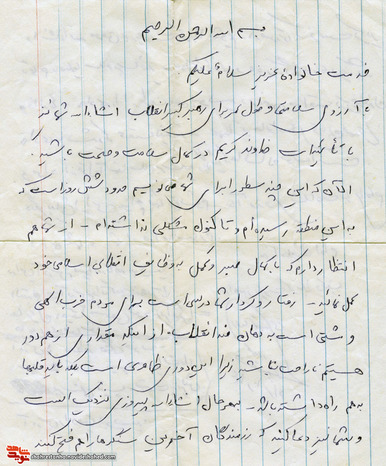 بسم الله الرحمن الرحیم
خدمت خانواده عزیز سلام علیکم
با آرزوی سلامتی و طول عمر برای رهبر کبیر انقلاب انشاءالله شما نیز
با تأییدات خداوند کریم در کمال سلامت و صحت باشید.
الآن که این چند سطور را برای شما می‌نویسم حدود شش روز است که
به این منطقه رسیده‌ام و تاکنون مشکلی نداشته‌ام - از شما هم
انتظار دارم که با کمال صبر و تحمل به وظایف انقلابی اسلامی خود
عمل نمائید - رفتار و کردار شما درسی است برای مردم حزب الهی
و مشتی است به دهان ضد انقلاب. از اینکه مقداری از هم دور
هستیم ناراحت نباشید زیرا این دوری ظاهری است بلکه باید قلبها
به هم راه داشته باشد. بهرحال انشاءالله پیروزی نزدیک است
و شما نیز دعا کنید که رزمندگان آخرین سنگرها را هم فتح کنند
shahredanhe.navideshahed.com